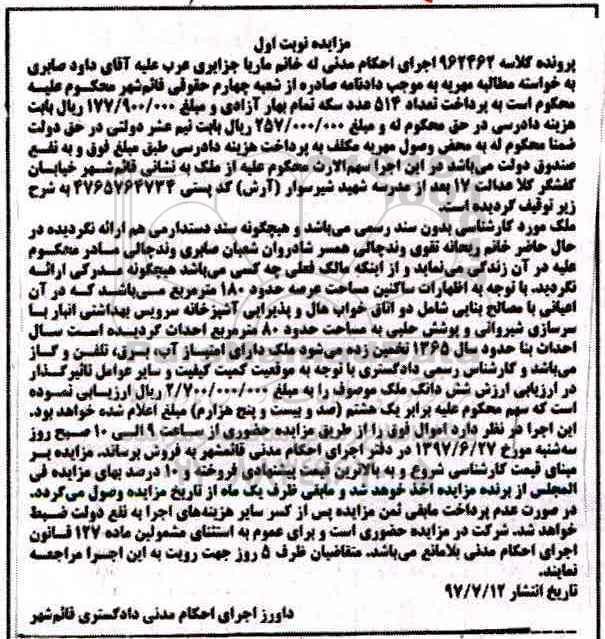 مزایده نوبت اول
پرونده کلاسه ۹۶۲۴۶۲ اجرای احکام مدنی له خانم ماریا جزایری عرب علیه آقای داود صابری
به خواسته مطالبه مهریه به موجب دادنامه صادره از شعبه چهارم حقوقی قائم‌شهر محکوم علیه
محکوم است به پرداخت تعداد ۵۱۴ عدد سکه تمام بهار آزادی و مبلغ ۱۷۷/۹۰۰/۰۰۰ ریال بابت
هزینه دادرسی در حق محکوم له و مبلغ ۲۵۷/۰۰۰/۰۰۰ ریال بابت نیم عشر دولتی در حق دولت
ضمنا محکوم له به محض وصول مهریه مکلف به پرداخت هزینه دادرسی طبق مبلغ فوق و به نفع
صندوق دولت می‌باشد در این اجرا سهم‌الارث محکوم علیه از ملک به نشانی قائم‌شهر خیابان
کفشگر کلا عدالت ۱۷ بعد از مدرسه شهید شیرسوار (آرش) کد پستی ۴۷۶۵۷۶۴۷۳۴ به شرح
زیر توقیف گردیده است
ملک مورد کارشناسی بدون سند رسمی می‌باشد و هیچگونه سند دستدارمی هم ارائه نگردیده در
حال حاضر خانم ریحانه تقوی وندچالی همسر شادروان شعبان صابری وندچالی مادر محکوم
علیه در آن زندگی می‌نماید و از اینکه مالک فعلی چه کسی می‌باشد هیچگونه مدرکی ارائه
نگردید. با توجه به اظهارات ساکنین مساحت عرصه حدود ۱۸۰ مترمربع می‌باشد که در آن
اعیانی با مصالح بنایی شامل دو اتاق خواب هال و پذیرایی آشپزخانه سرویس بهداشتی انبار با
سرسازی شیروانی و پوشش حلبی به مساحت حدود ۸۰ مترمربع احداث گردیده است سال
احداث بنا حدود سال ۱۳۶۵ تخمین زده می‌شود ملک دارای امتیاز آب، برق، تلفن و گاز
می‌باشد و کارشناس رسمی دادگستری با توجه به موقعیت کمیت کیفیت و سایر عوامل تاثیرگذار
در ارزیابی ارزش شش دانگ ملک موصوف را به مبلغ ۲/۷۰۰/۰۰۰/۰۰۰ ریال ارزیابی نموده
است که سهم محکوم علیه برابر یک هشتم (صد و بیست و پنج هزارم) مبلغ اعلام شده خواهد بود.
این اجرا در نظر دارد اموال فوق را از طریق مزایده حضوری از ساعت ۹ الی ۱۰ صبح روز
سه‌شنبه مورخ ۱۳۹۷/۶/۲۷ در دفتر اجرای احکام مدنی قائمشهر به فروش برساند. مزایده بر
مبنای قیمت کارشناسی شروع و به بالاترین قیمت پیشنهادی فروخته و ۱۰ درصد بهای مزایده فی
المجلس از برنده مزایده اخذ خواهد شد و مابقی ظرف یک ماه از تاریخ مزایده وصول می‌گردد.
در صورت عدم پرداخت مابقی ثمن مزایده پس از کسر سایر هزینه‌های اجرا به نفع دولت ضبط
خواهد شد. شرکت در مزایده حضوری است و برای عموم به استثنای مشمولین ماده ۱۲۷ قانون
اجرای احکام مدنی بلامانع می‌باشد. متقاضیان ظرف ۵ روز جهت رویت به این اجرا مراجعه
نمایند.
تاریخ انتشار ۹۷/۷/۱۲
داورز اجرای احکام مدنی دادگستری قائم‌شهر